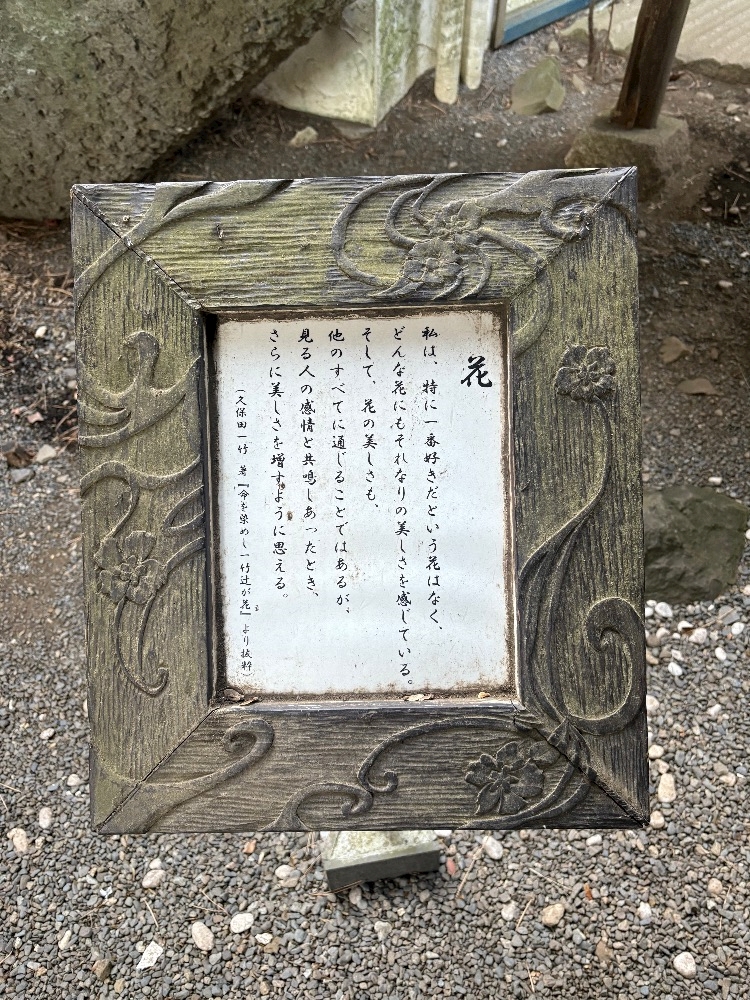 花
私は、特に一番好きだという花はなく、
どんな花にもそれなりの美しさを感じている。
そして、花の美しさも、
他のすべてに通じることではあるが、
見る人の感情と共鳴しあったとき、
さらに美しさを増すように思える。
(久保田一竹 著『命を染めし一竹辻が花』より抜粋)